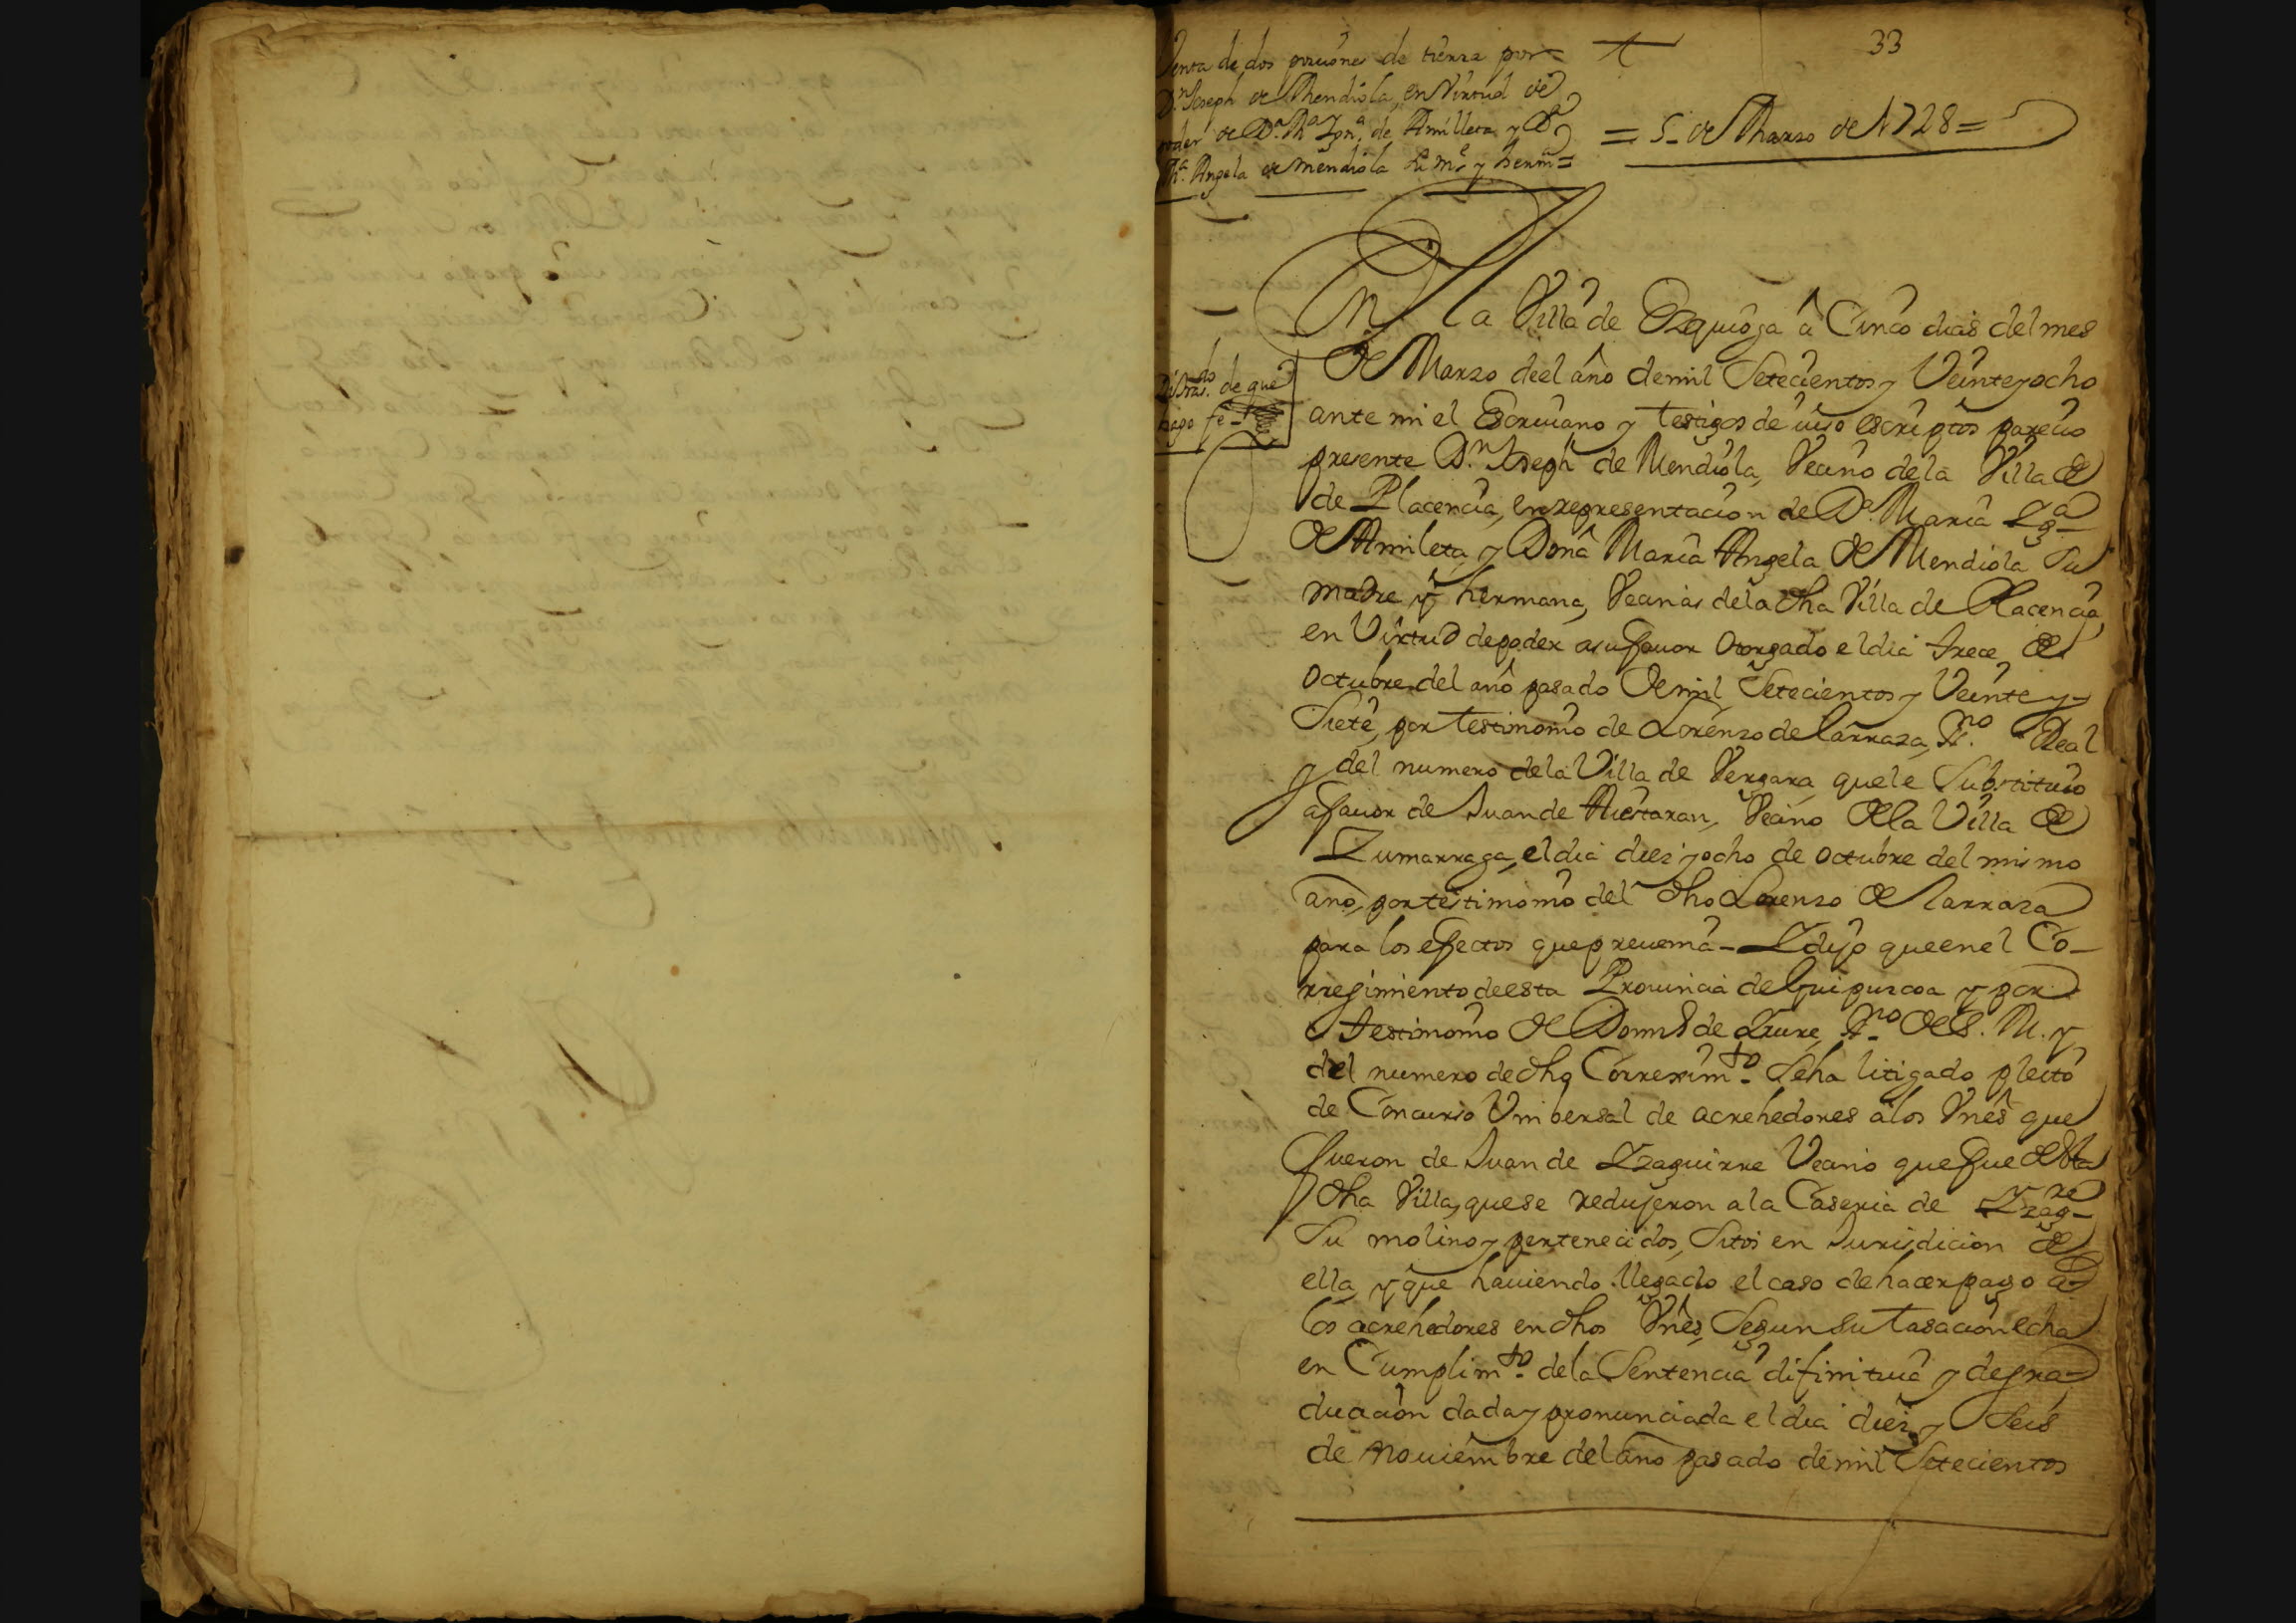 33
Venta de dos porciones de tierra por
Dn. Joseph de Mendiola, en Virtud de
poder de Da. Ma. Ign.a de Amilleta y Da
Ma. Angela de Mendiola su me. y herm=
= 5_ de Marzo de 1728=
En la Villa de Ezquioga â Cinco dias del mes
de Marzo de el año de mil Setecientos y Veinte y ocho
ante mi el Escriuano y testigos de iuso escriptos parecio
presente Dn. Joseph de Mendiola, Vecino de la Villa de
de Placencia, en representacion de Da. Maria Iga
de Amileta, y Doña Maria Angela de Mendiola Su
madre y hermana, Vecinas de la dha Villa de Placencia,
en Virtud de poder a su fauor otorgado el dia trece de
octubre del año pasado de mil Setecientos y Veinte y
Siete, por testimonio de Lorenzo de Larraza, Sno. Real
y del numero de la Villa de Vergara, que le Substituio
a fauor de Juan de Aiestaran, Vecino de la Villa de
Zumarraga, el dia diez y ocho de octubre del mismo
año, por testimonio del dho Lorenzo de Larraza
para los efectos que preuenia_ Y dijo que en el Co_
rregimiento de esta Prouincia de Guipuzcoa y por
testimonio de Domdo de Lure, Sno de S. M. y
del numero de dho Correximto. Se ha litigado pleito
de Concurso Vnibersal de acrehedores a los Vnes que
fueron de Juan de Yzaguirre Vecino que fue de esta
dha Villa, que se redujeron a la Caseria de Yzagre
Su molino y pertenecidos, Sitos en Jurisdicion de
ella, y que hauiendo llegado el caso de hacer pago a
los acrehedores en dhos Vnes, Segun su tasacion echa
en Cumplimto. de la Sentencia difinitiua y de gra=
duacion dada y pronunciada el dia diez y Seis
de nouiembre del año pasado de mil Setecientos
de que
hago fe_